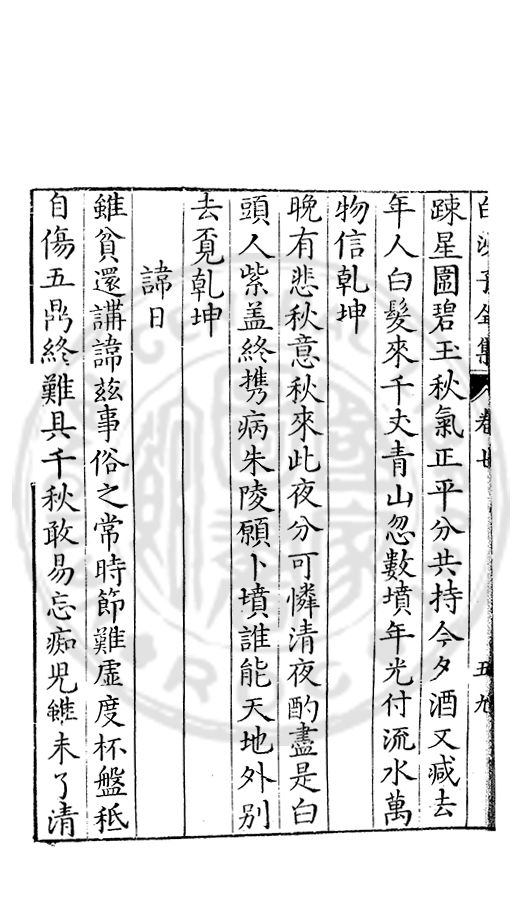 白沙子全集 卷廿 五九
踈星圍碧玉秋氣正平分共持今夕酒又减去
年人白髮來千丈青山忽數墳年光付流水萬
物信乾坤
晚有悲秋意秋來此夜分可憐清夜酌盡是白
頭人紫盖終携病朱陵願卜墳誰能天地外别
去覔乾坤
諱日
雖貧還講諱兹事俗之常時節難虚度杯盤秪
自傷五鼎終難具千秋敢易忘痴兒雖未了清